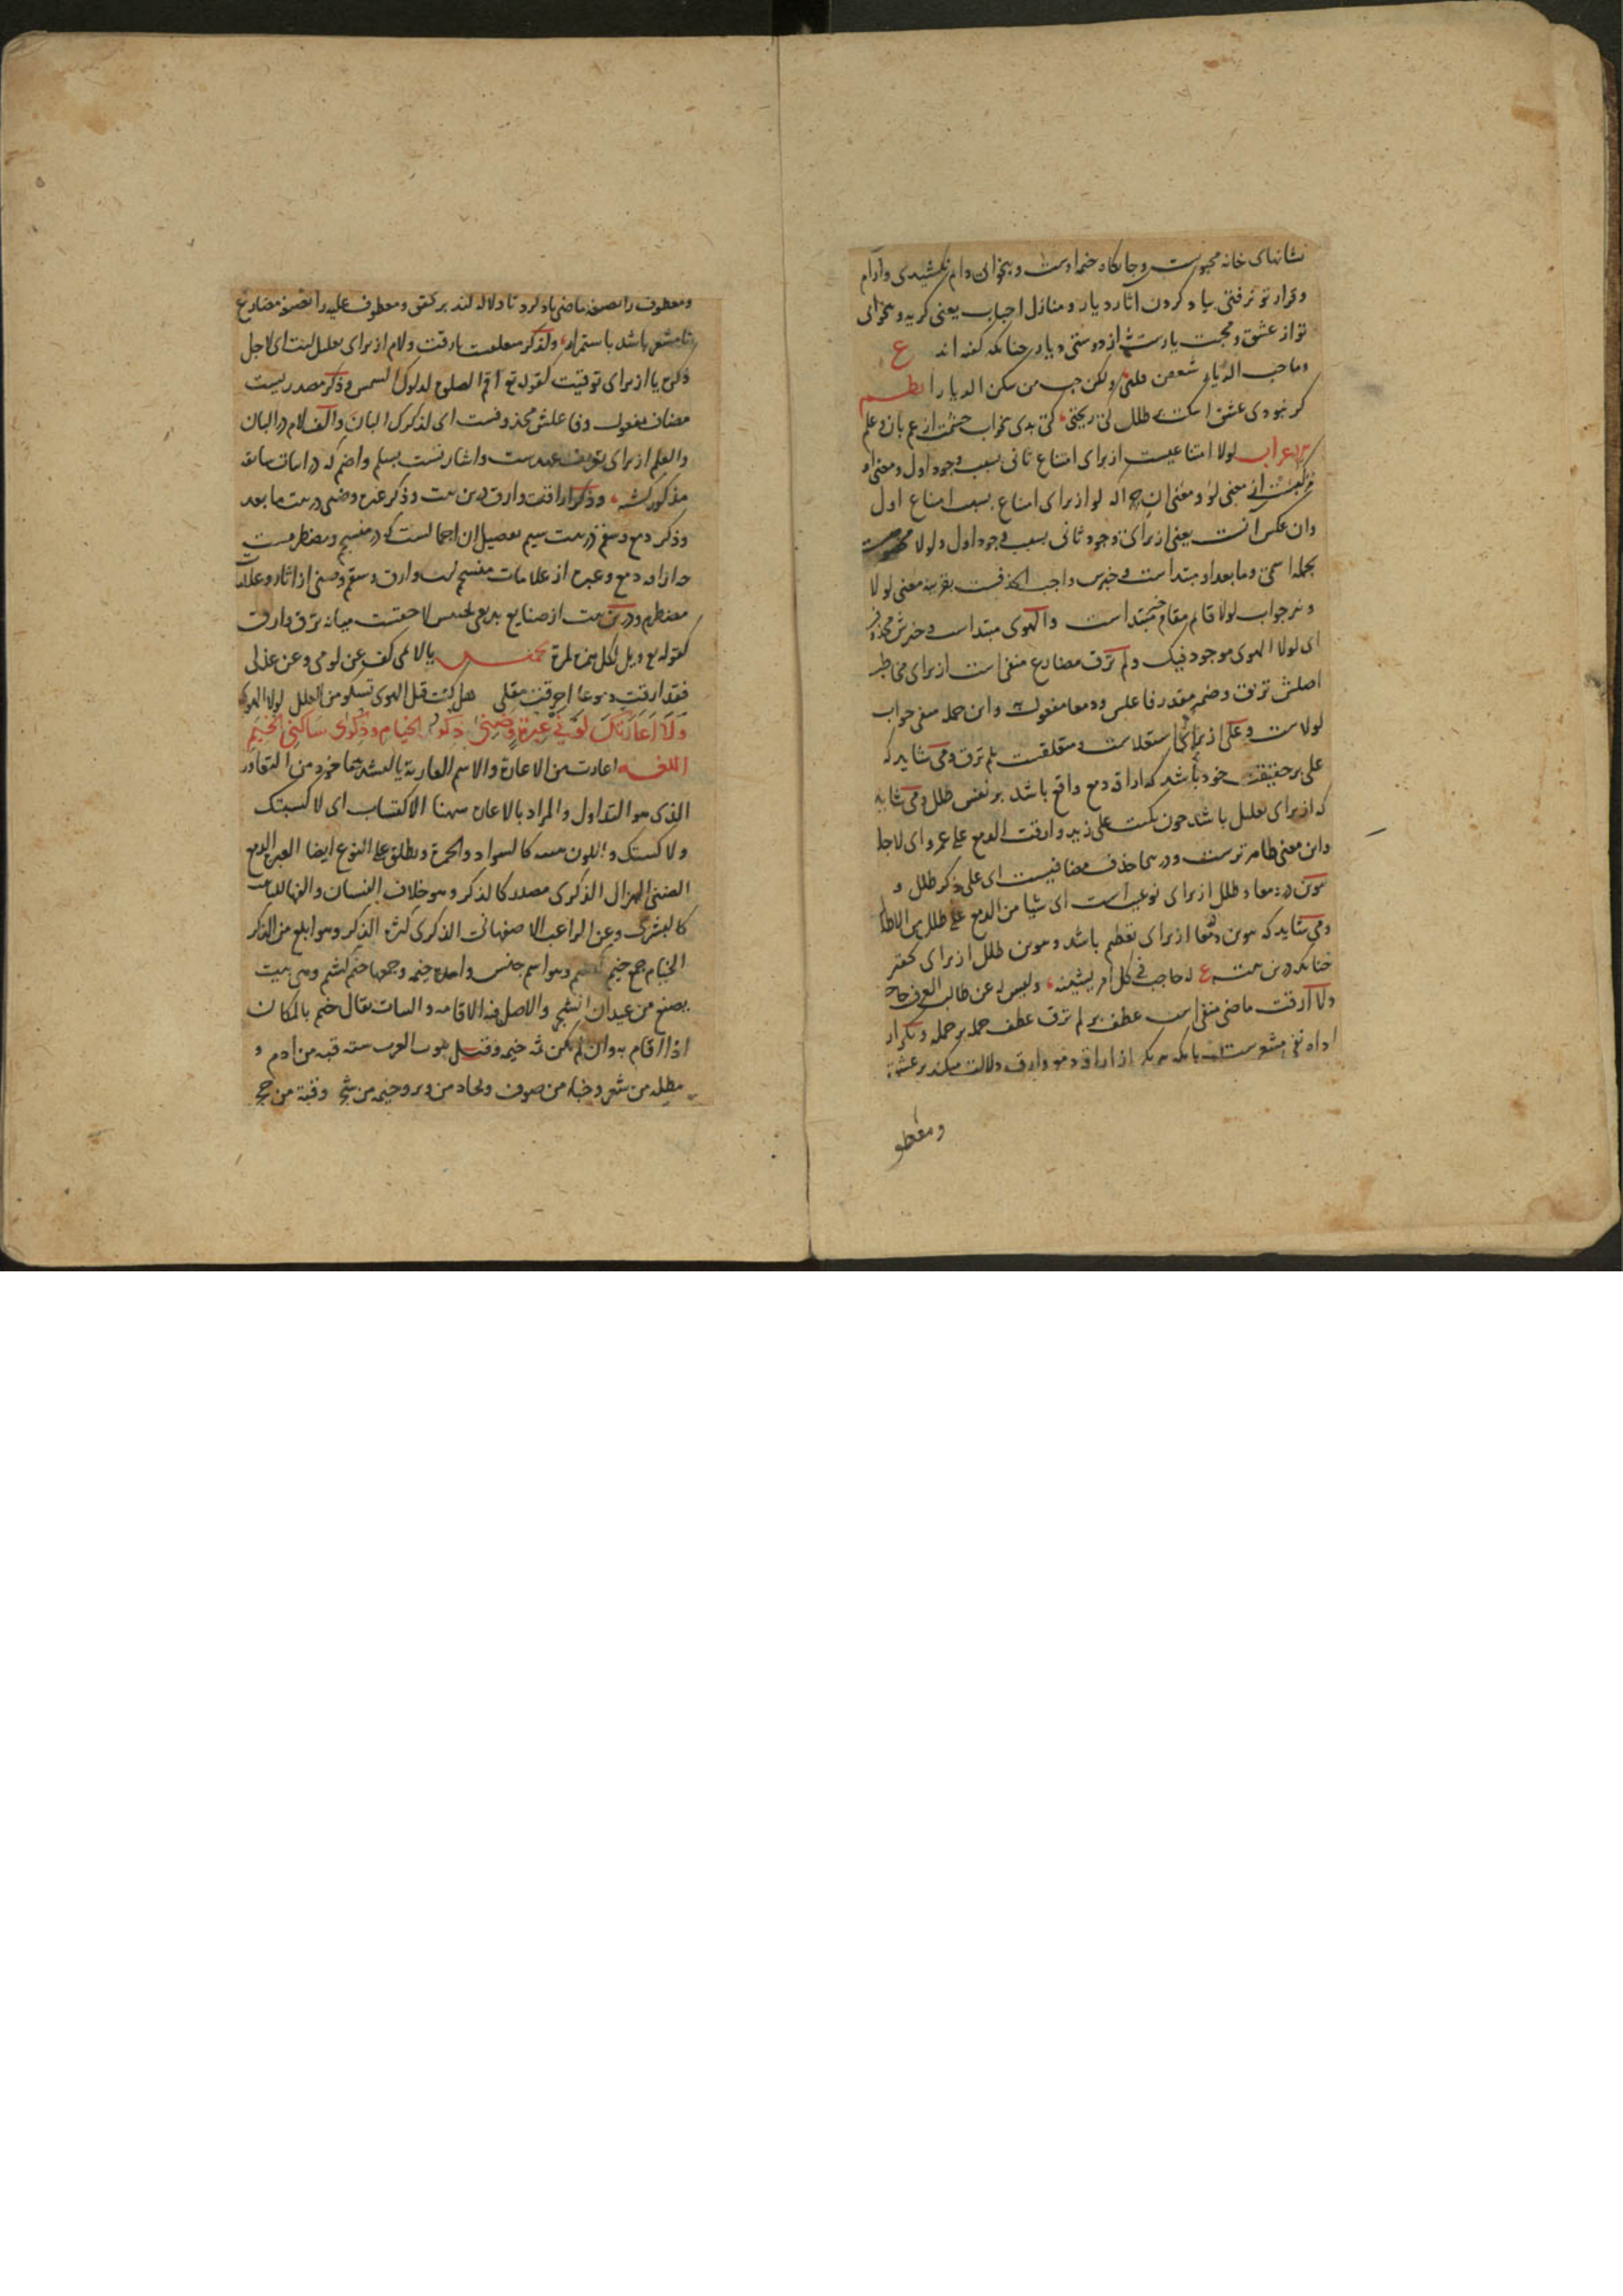 نشانهای خانه محبوبست وجایگاه خیمه اوست و بیخوابی دایم نکشیدی وآرام
وقرار تو نرفتی بیاد کردن اثار دیار و منازل احباب یعنی گریه و بیخوابی
تو از عشق و محبت یارست نه از دوستی دیار چنانکه گفته اند ع
وما حب الدیار شغفن قلبی ولکن حب من سکن الدیارا نظم
گر نبودی عشق اشکت بر طلل کی ریختی کی بدی بیخواب چشمت از غم بان و علم
الاعراب لولا امتناعیست از برای امتناع ثانی بسبب وجود اول و معنی او
مرکبست از معنی لو و معنی ان چه لو از برای امتناع بسبب امتناع اول
وان عکس انست یعنی از برای وجود ثانی بسبب وجود اول ولولا
بجمله اسمی وما بعد او مبتداست و خبرش واجب الحذفست بقرینه معنی لولا
و نیز جواب لولا قایم مقام خبر مبتداست والهوی مبتداست و خبرش محذوف
ای لولا الهوی موجود فیک ولم ترق مضارع منفی است از برای مخاطب
اصلش تریق و ضمیر مقدر فاعلش ودمعا مفعول به واین جمله منفی جواب
لولاست وعلی از برای استعلاست و متعلقست بلم ترق و می شاید که
علی بر حقیقت خود باشد که اراقه دمع واقع باشد بر نفس طلل و می شاید
که از برای تعلیل باشد چون بکیت علی زید وارقت الدمع علی عمرو ای لاجله
واین معنی ظاهرترست و در حذف مضافیست ای علی ذکر طلل و
تنوین در دمعا و طلل از برای نوعیت است ای شیا من الدمع علی طلل من الاطلال
و می شاید که تنوین دمعا از برای تعظیم باشد و تنوین طلل از برای تحقیر
چنانکه درین بیت ع له حاجب فی کل امر یشینه ولیس له عن طالب العرف حاجب
ولا ارقت ماضی منفی است عطف بر لم ترق عطف جمله بر جمله و تکرار
اداه نفی مشعرست بانکه هر یک از اراقه دمع وارق دلالت میکند بر عشق
ومعطو
ومعطوف را بصیغه ماضی یاد کرد تا دلاله کند بر تحقق ومعطوف علیه را بصیغه مضارع
تا مشعر باشد باستمرار ولذکر متعلقست بارقت ولام از برای تعلیل است ای لاجل
ذکر یا از برای توقیت کقوله تع اقم الصلوة لدلوک الشمس وذکر مصدریست
مضاف بمفعول وفاعلش محذوفست ای لذکرک البان والف لام در البان
والعلم از برای تعریف عهدست واشارتست بسلم واضم که در ابیات سابقه
مذکور شد وذکر اراقت وارق درین بیت وذکر عبره وضنی در بیت ما بعد
وذکر دمع وسقم در بیت سیم تفصیل ان اجمالست که در منسجم ومضطرمست
چه اراقه دمع وعبره از علامات منسجم است وارق وسقم وضنی از اثار وعلامات
مضطرم ودرین بیت از صنایع بدیعی تجنیس لاحقست میانه ترق وارقت
کقوله تع ویل لکل همزة لمزة تخمیس یا لائمی کف عن لومی وعن عذلی
فقد ارقت دموعا احرقت مقلی هل کنت قبل الهوی تسلو من العلل لولا الهوی
ولا اعارتک لونی عبرة وضنی ذکری الخیام وذکری ساکنی الخیم
اللغه اعارت من الاعارة والاسم العاریة بالتشدید ماخوذ من التعاور
الذی هو التداول والمراد بالاعارة ههنا الاکتساب ای لا کسبتک
ولا کستک واللون هیئة کالسواد والحمرة ویطلق علی النوع ایضا العبرة الدمع
الضنی الهزال الذکری مصدر کالذکر وهو خلاف النسیان والفها للتانیث
کالبشری وعن الراغب الاصفهانی الذکری کثرة الذکر وهو ابلغ من الذکر
الخیام جمع خیم وهو اسم جنس واحدة خیمة وجمعها خیم وهی بیت
یصنع من عیدان الشجر والاصل فیه الاقامه والثبات یقال خیم بالمکان
اذا اقام به وان لم یکن ثمه خیمه وقیل بیوت العرب سته قبه من ادم و
مظله من شعر وخباء من صوف وبجاد من وبر وخیمه من شجر وقنة من حجر